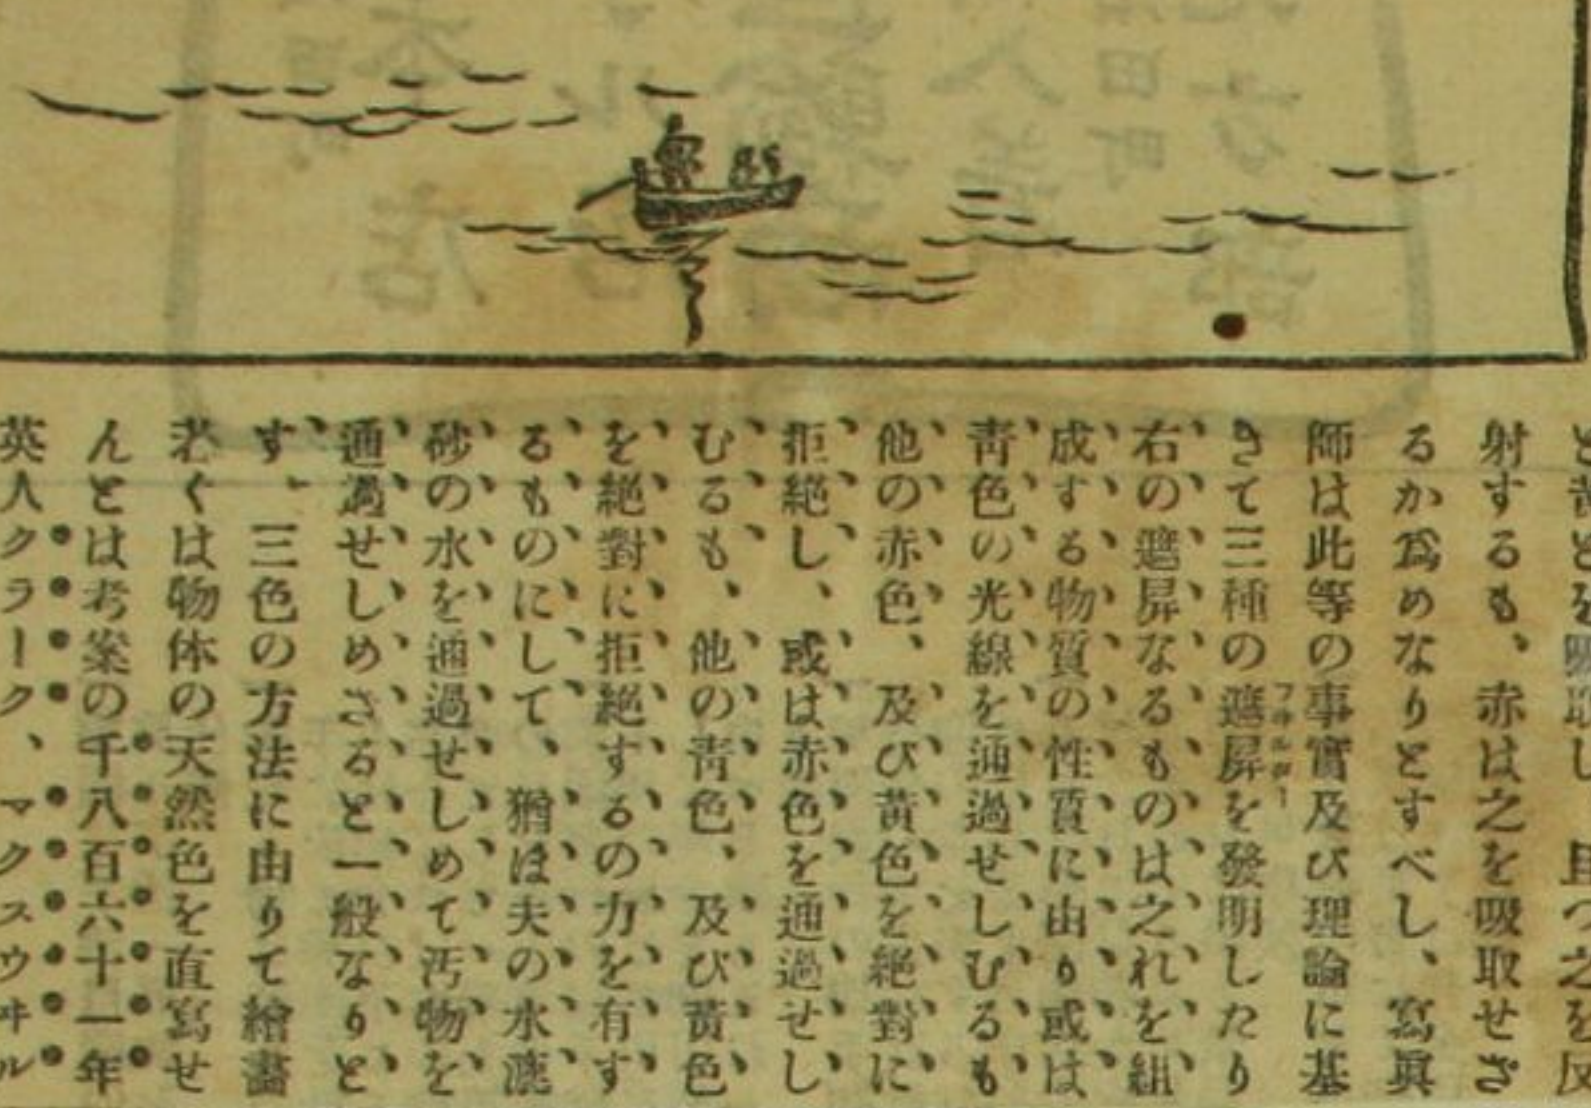 射するも、赤は之を吸取せざ
るか爲めなりとすべし、寫眞
師は此等の事實及び理論に基
きて三種の遮屏を發明したり
フヰルター
右の遮屏なるものは之れを組
成する物質の性質に由り或は
靑色の光線を通過せしむるも
他の赤色、及び黃色を絕對に
拒絕し、或は赤色を通過せし
むるも、他の靑色、及び黃色
を絕對に拒絕するの力を有す
るものにして、猶ほ夫の水漉
砂の水を通過せしめて汚物を
通過せしめざると一般なりと
す、三色の方法に由りて繪畵
若くは物体の天然色を直寫せ
んとは考案の千八百六十一年
英人クラーク、マクスウヰル